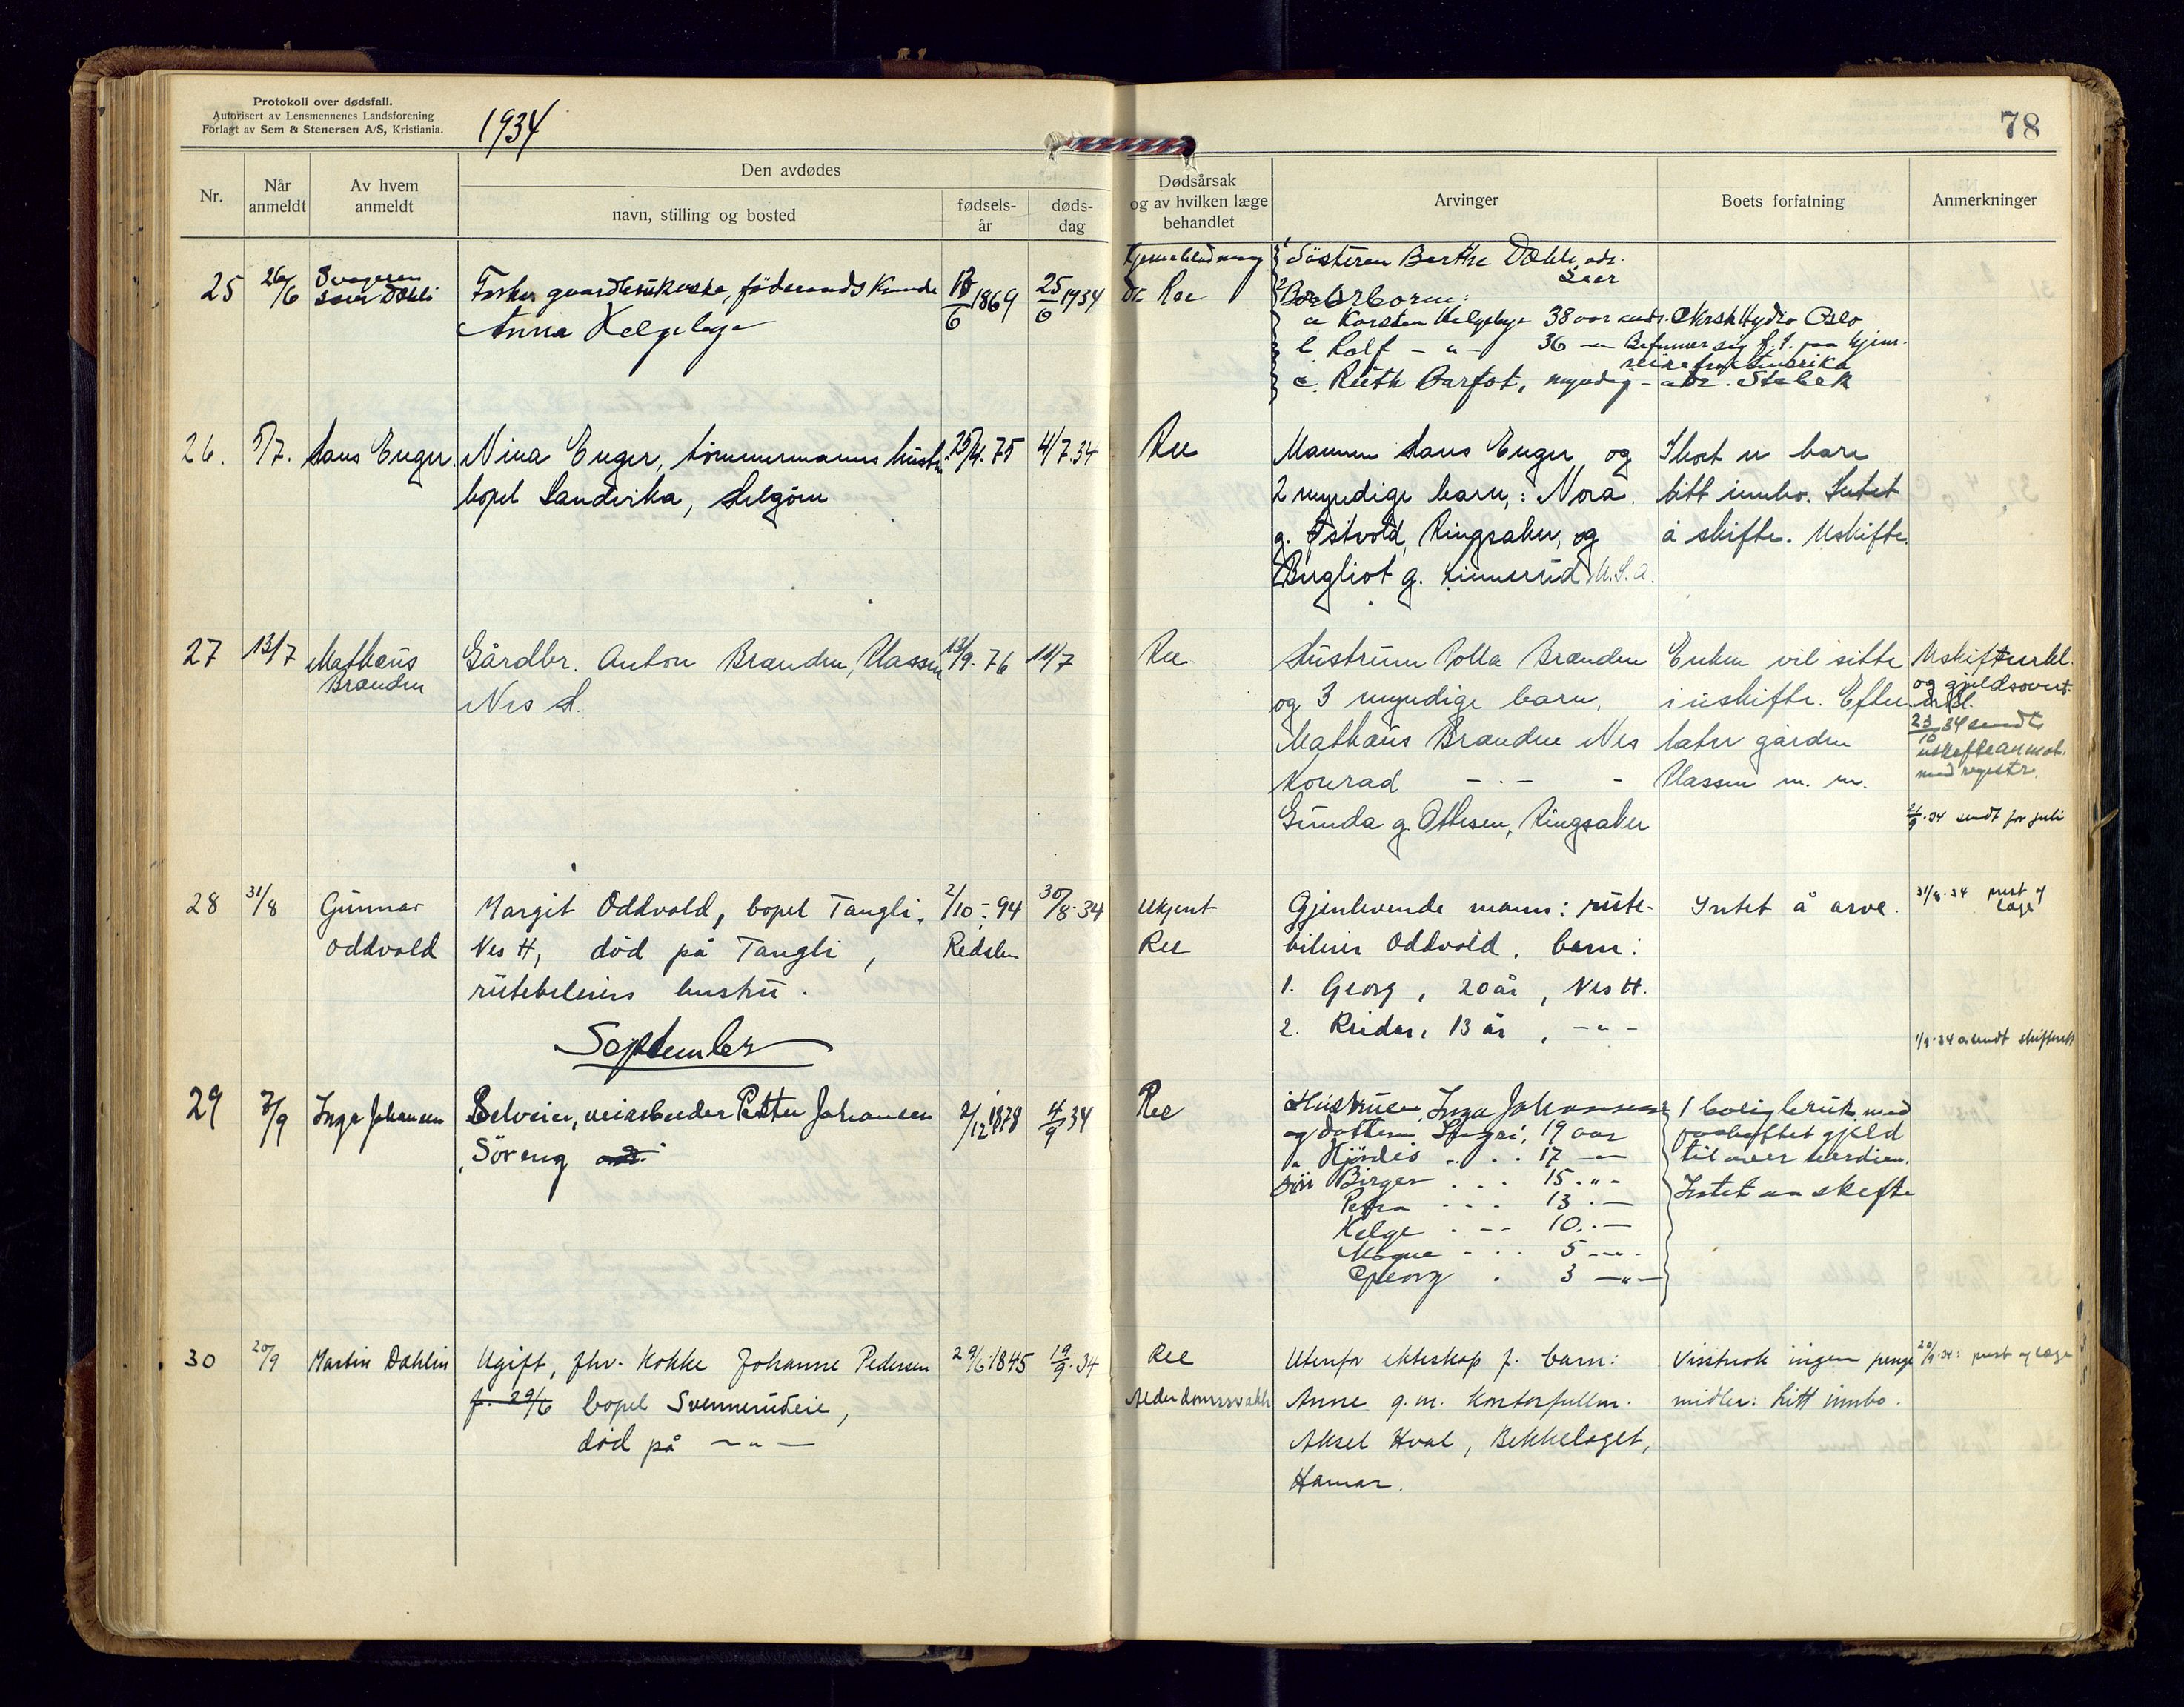 Protokoll over dødsfall.
Autorisert av Lensmennenes Landsforening
Forlagt av Sem & Stenersen A/S, Kristiania.
1934
78
Nr.
Når anmeldt
Av hvem anmeldt
Den avdødes
navn, stilling og bosted
fødsels-år
døds-dag
Dødsårsak og av hvilken læge behandlet
Arvinger
Boets forfatning
Anmerkninger
25 26/6 Svogeren Dæhli
Anna Helgeby
6 1869 25/6 1934
Dr Ree
1 Søsteren Berthe Dæhli adr.
2 Brorbørn:
a Karsten Helgeby 38 aar Norsk Hydro Oslo
b. Rolf - " - 36 - Befinner sig paa hjem-
reise fra Amerika
c. Ruth Barfot, myndig - adr. Stabek
26. 5/7. Hans Enger. Nina Enger, tømmermanns hustru 25/4. 75 4/7 34
bopel Sandvika, Helgøen
Ree
Mannen Hans Enger og
2 myndige barn,: Nora
g. Østvold, Ringsaker, og
Bergliot g. U.S.A.
I boet er bare
litt innbo. Intet
å skifte. Uskifte.
27 13/7 Mathæus Brænden
Gårdbr. Anton Brænden, Plassen 13/9. 76 11/7
Nes H.
Ree
Hustruen Polla Brænden
og 3 myndige barn.
Mathæus Brænden Nes
Konrad - " - -
Gunda g. Ottesen, Ringsaker
Enken vil sitte
i uskifte. Efter-
later gården
Plassen m. m.
Uskifteerkl.
og gjeldsovert.
erkl.
23/10 34 sendt
uskifteanmod.
med registr.
21/9 . 34 sendt for juli
28 31/8 Gunnar Oddvold
Margit Oddvold, bopel Tangli, 2/10 - 94 30/8. 34
Nes H, død på Tangli, Redalen
rutebileiers hustru.
Ukjent
Ree
Gjenlevende mann: rute-
bileier Oddvold. barn:
1. Georg, 20 år, Nes H.
2. Reidar, 13 år, - " -
Intet å arve.
31/8. 34 prest og læge
1/9. 34 avsendt skifterett
September
29 7/9 Inga Johansen
Selveier, veiarbeider Petter Johansen 2/12 1878 4/9 34
Søreng
Ree
Hustruen, Inga Johansen
og datteren Ingri, 19 aar
" Hjørdis . . . 17 -
søn Birger . . . 15 . " -
Petra . . . 13 . -
Helge . - - 10 . . -
Magne - . . 5 - " -
Georg . 3 - " -
1 boligbruk med
paaheftet gjeld
til over verdien.
Intet aa skifte
30 20/9 Martin Dæhlin
Ugift, fhv. kokke Johanne Pedersen 29/6. 1845 19/9. 34
f. 29/6 bopel Svennerudeie,
død på - " -
Ree
Alderdomssvakh
Utenfor ekteskap f. barn:
Anne g. m. kontorfullm.
Aksel Hval, Bekkelaget,
Hamar.
Visstnok ingen penge-
midler: Litt innbo.
20/9. 34: prest og læge